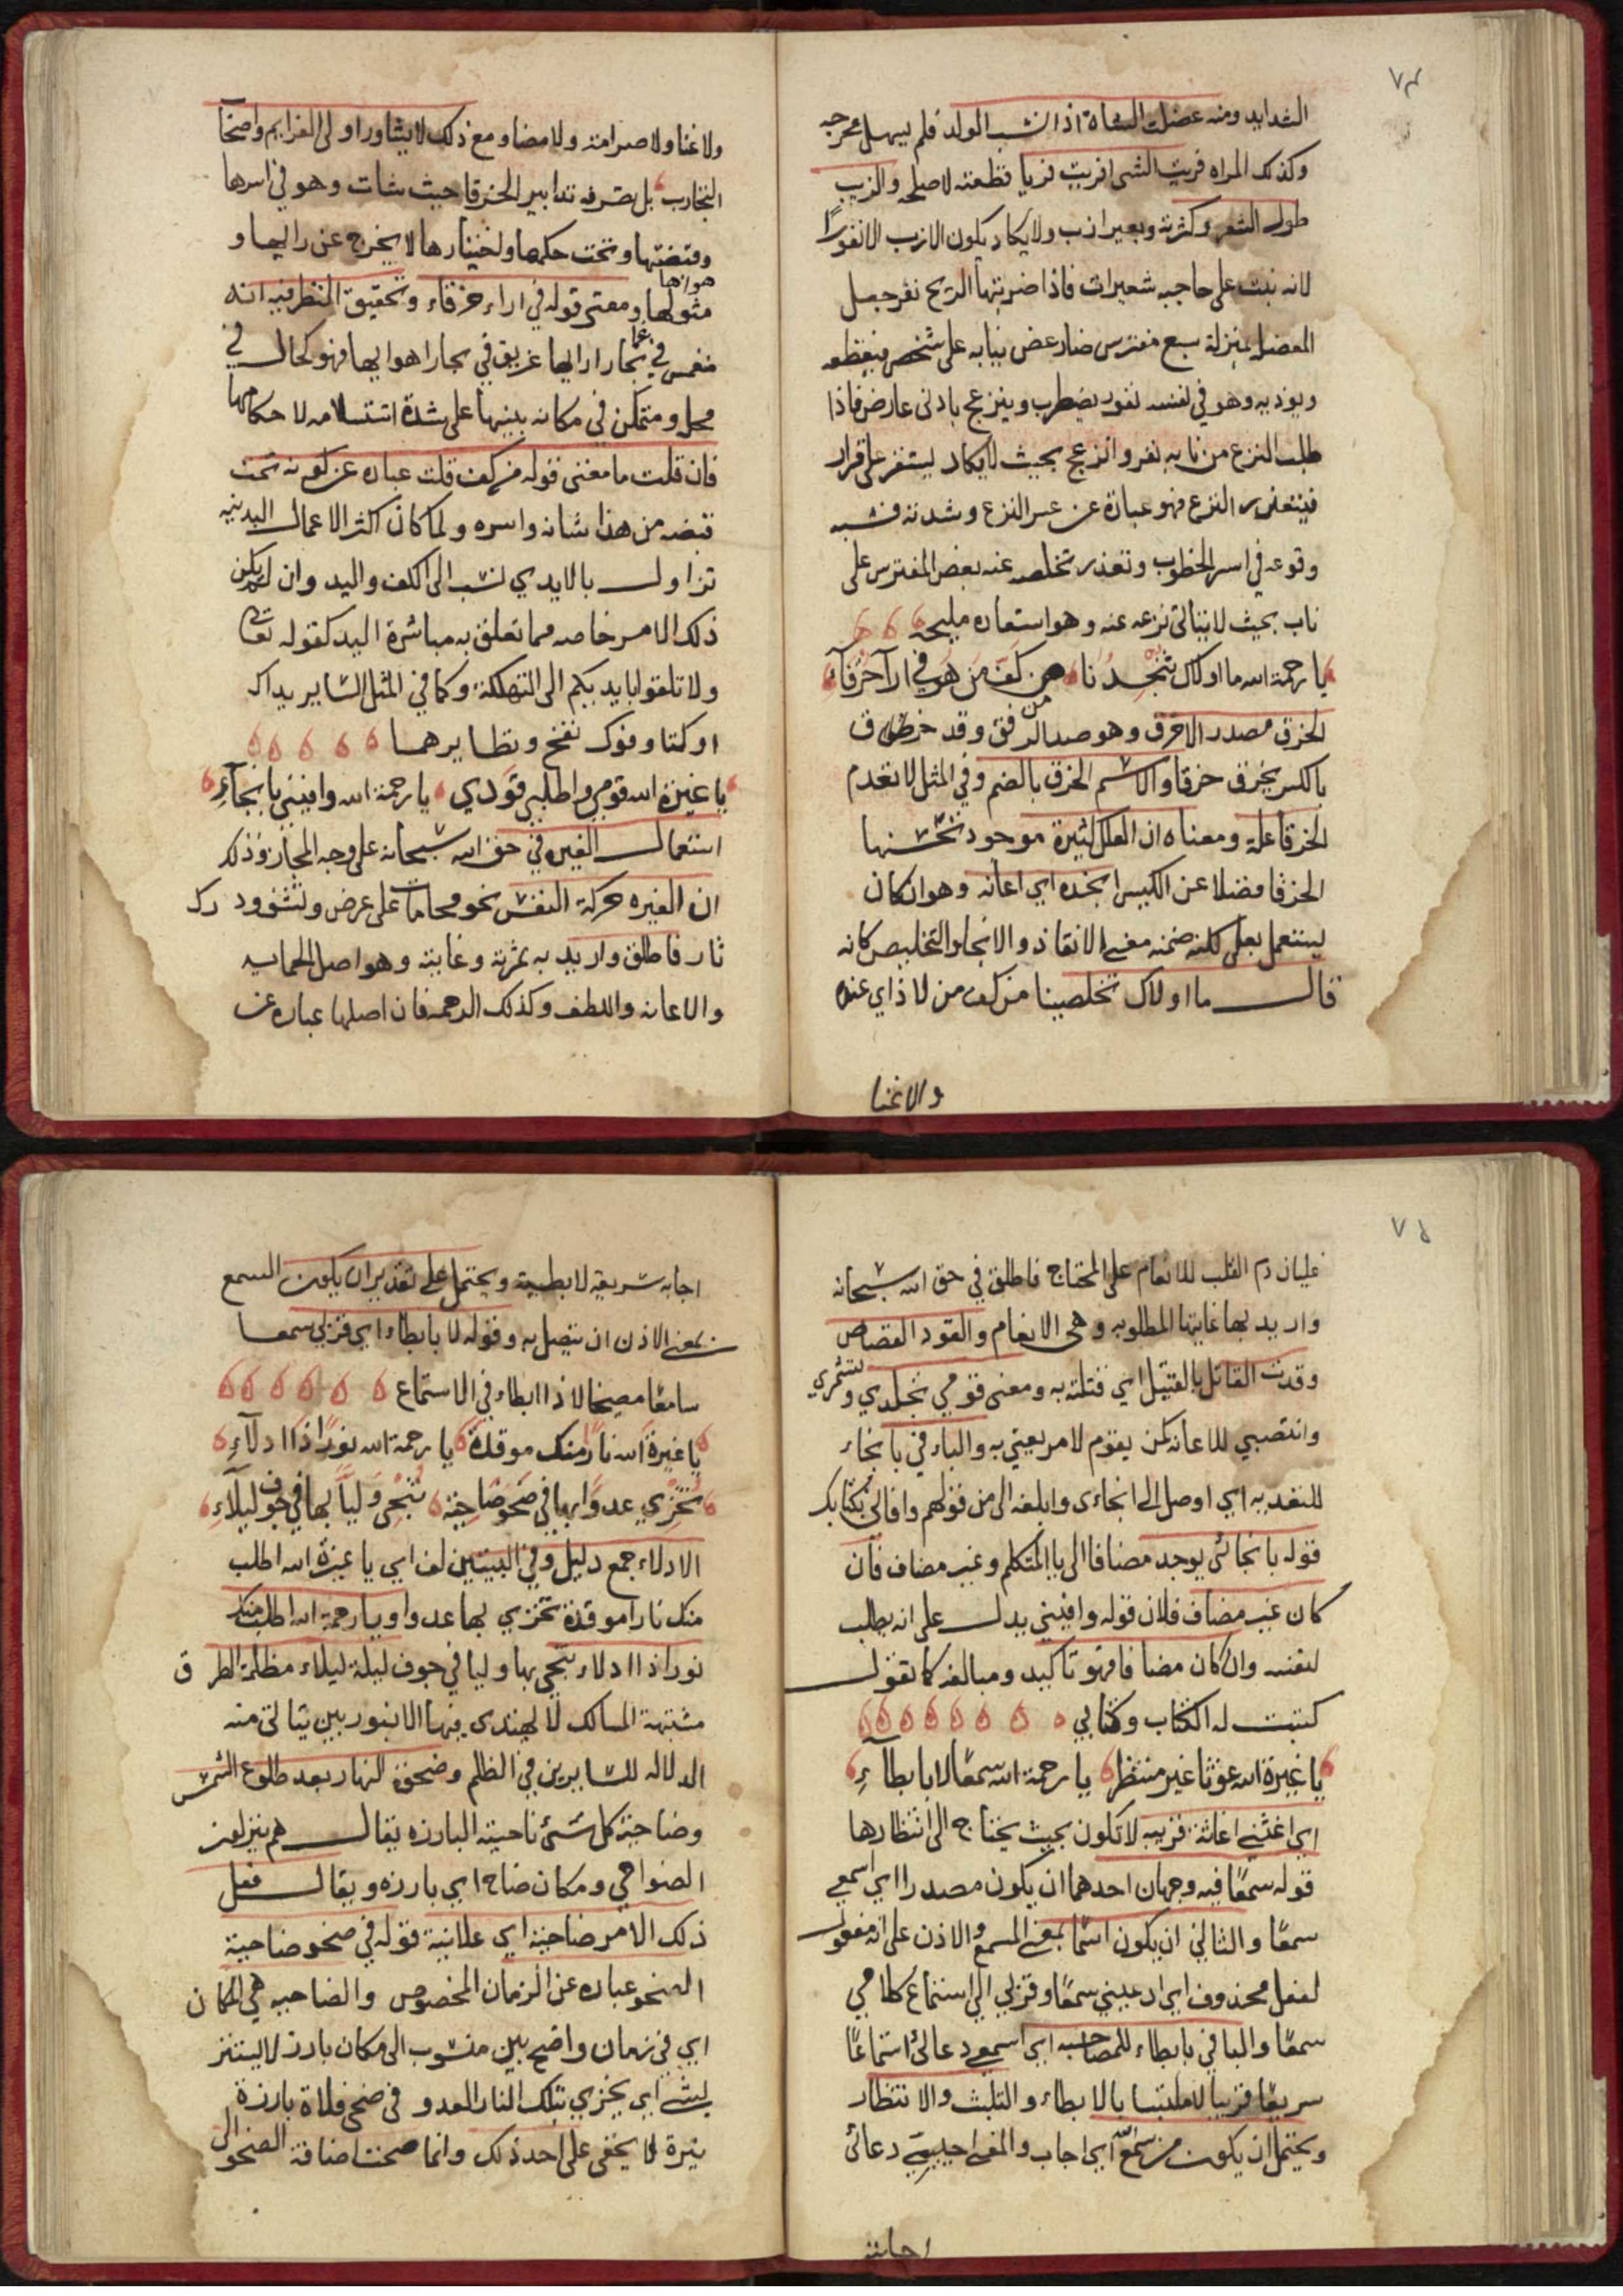 ٧٤
الشدايد ومنه عضلت الشاة اذا نشب الولد فلم يسهل مخرجه
وكذلك المراه فريت الشى افريه فريا قطعته لاصلحه والزبب
طول الشعر وكثرته وبعير ازب ولا يكاد يكون الازب الا نفورًا
لانه نبت على حاجبه شعيرات فاذا ضربتها الريح نفر جعل
المعضل بمنزلة سبع مفترس ضار عض بنيابه على شخص فيقطعه
ويوذيه وهو في نفسه نفور يضطرب وينزعج بادنى عارض فاذا
طلب النزع من نابه نفر وانزعج بحيث لا يكاد يستقر على قرار
فيتعذر النزع فهو عبارة عن عسر النزع وشدته فشبه
وقوعه في اسر الخطوب وتعذر تخلصه عنه بعض المفترس على
ناب بحيث لا يتاتى نزعه عنه وهو استعاره مليحه
يا رحمة الله ما اولاك تنجدنا من كف من هو في ارآ خرقآء
الخرق مصدر الاخرق وهو ضد الرفق وقد خرق
بالكسر يخرق خرقا والاسم الخرق بالضم وفي المثل لا تعدم
الخرقا علة ومعناه ان العلل كثيرة موجود تحسنها
الخرقا فضلا عن الكيس انجده اي اعانه وهو ان كان
يستعمل بعلى لكنه ضمنه معنى الانقاذ والانجا والتخليص كانه
قال ما اولاك تخلصينا من كف من لا ذا اي عنده
والا غنا
ولا غنا ولا صرامة ولا مضا ومع ذلك لا يشاور اولى العزايم واصحاب
التجارب بل تصرفه تدابير الخرقا حيث شات وهو في اسرها
وقبضتها وتحت حكمها واختيارها لا يخرج عن رايها و
هواها
مثولها ومعنى قوله في اراء خرقاء وتحقيق النظر فيه انه
منغمس في بحار ارايها غريق في بحار اهوايها فهو كحال في
محل ومتمكن في مكانه ينبها على شدة استسلامه لاحكامها
فان قلت ما معنى قوله من كف قلت عباره عن كونه تحت
قبضه من هذا شانه واسره ولما كان اكثر الاعمال البدنيه
تزاول بالايدي نسب الى الكف واليد وان لم يكن
ذلك الامر خاصه مما تعلق به مباشرة اليد كقوله تعالى
ولا تلقوا بايديكم الى التهلكة وكما في المثل الساير يداك
اوكتا وفوك نفخ ونظايرهما
يا غيرة الله قومي واطلبي قودي يا رحمة الله وافيني بانجآءِ
استعمال الغيره في حق الله سبحانه على وجه المجاز وذلك
ان الغيره حركة النفس نحو محاماة على عرض وتشفي ودرك
ثار فاطلق واريد به ثمرته وغايته وهو اصل الحمايه
والاعانه واللطف وكذلك الرحمه فان اصلها عباره عن
٧٥
غليان دم القلب للانعام على المحتاج فاطلق في حق الله سبحانه
واريد بها غايتها المطلوبه وهى الانعام والقود القصاص
وقدت القاتل بالقتيل اي قتلته به ومعنى قومي تجلدي وتشمري
وانتصبي للاعانه كمن يقوم لامر يعتني به والباء في بانجاء
للتعديه اي اوصل الى انجاءى وابلغه الى من قولهم وافانى بكتابك
قوله بانجائى يوجد مضافا الى ياا المتكلم وغير مضاف فان
كان غير مضاف فلان قوله وافيني يدل على انه يطلب
لنفسه وان كان مضافا فهو تاكيد ومبالغه كما تقول
كتبت له الكتاب وكتابي
يا غيرة الله غوثا غير منتظر يا رحمة الله سمعًا لا بابطآءِ
اي اغثني اغاثة قريبه لا تكون بحيث يحتاج الى انتظارها
قوله سمعًا فيه وجهان احدهما ان يكون مصدرا اي اسمعي
سمعًا والثاني ان يكون اسمًا بمعنى المسمع والاذن على انه مفعول
لفعل محذوف اي ادعيني سمعًا وقربي الي استماع كلامي
سمعًا والبا في بابطاء للمصاحبه اي اسمعي دعائى استماعًا
سريعًا قريبا لا ملتبسا بالابطاء والتلبث والانتظار
ويحتمل ان يكون من سمع الله اي اجاب والمعنى اجيبي دعائى
اجابة
اجابه سريعة لا بطيية ويحتمل على تقدير ان يكون السمع
بمعنى الاذن ان يتصل به وقوله لا بابطاء اي قربى سمعا
سامعًا مصيخا لا ذا ابطاء في الاستماع
يا غيرة الله نارًا منك موقدة يا رحمة الله نورًا ذا ادلآءِ
تخزي عدوًا بها في ضحو ضاحية تنجى وليًا بها في جوف ليلآءِ
الادلاء جمع دليل وفي البيتين لف اي يا غيرة الله اطلب
منك نارا موقدة تخزي بها عدوا ويا رحمة الله اطلب منك
نورا ذا ادلاء تنجي بها وليا في جوف ليلة ليلاء مظلمة الطرق
مشتبهة المسالك لا يهتدى فيها الا بنور بين يتاتى منه
الدلاله للسايرين في الظلم وضحوة النهار بعد طلوع الشمس
وضاحية كل شئ ناحيته البارزه يقال هم ينزلون
الضواحي ومكان ضاح اي بارزه ويقال فعل
ذلك الامر ضاحية اي علانية قوله في ضحو ضاحية
الضحو عباره عن الزمان المخصوص والضاحيه هي المكان
اي في زمان واضح بين منسوب الى مكان بارز لا يستتر
بشئ اي يخزي بتلك النار العدو في ضحى فلاة بارزة
نيرة لا يخفى على احد ذلك وانما صحت اضافة الضحو الى